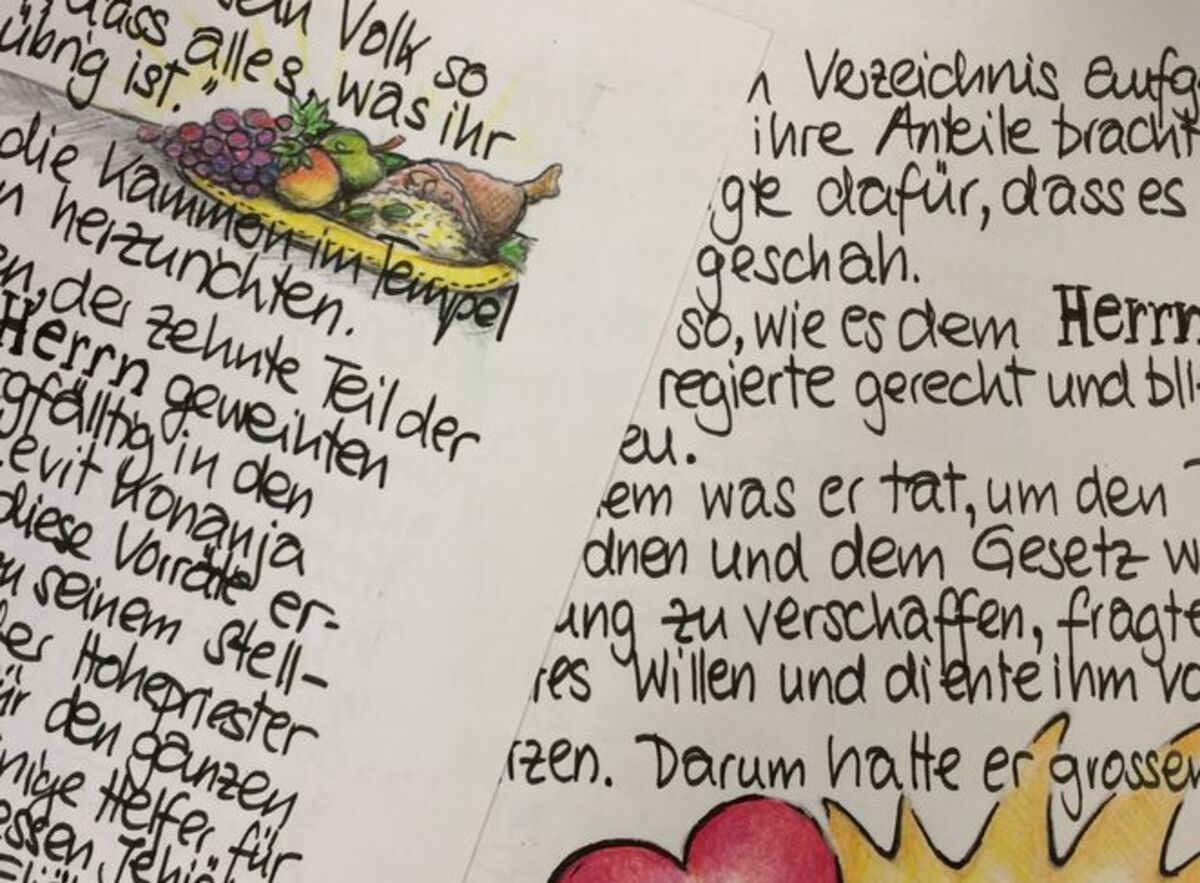 Volk so
dass alles, was ihr
übrig ist."
die Kammern im Tempel
herzurichten.
der zehnte Teil der
Herrn geweihten
in den
Konanja
diese Vorräte er-
seinem Stell-
Hohepriester
den ganzen
Helfer für
Verzeichnis
ihre Anteile
dafür, dass es
geschah.
so, wie es dem Herrn
regierte gerecht und
eu.
em was er tat, um den
dnen und dem Gesetz
ung zu verschaffen, fragte
Willen und diente ihm
rzen. Darum hatte er grossen